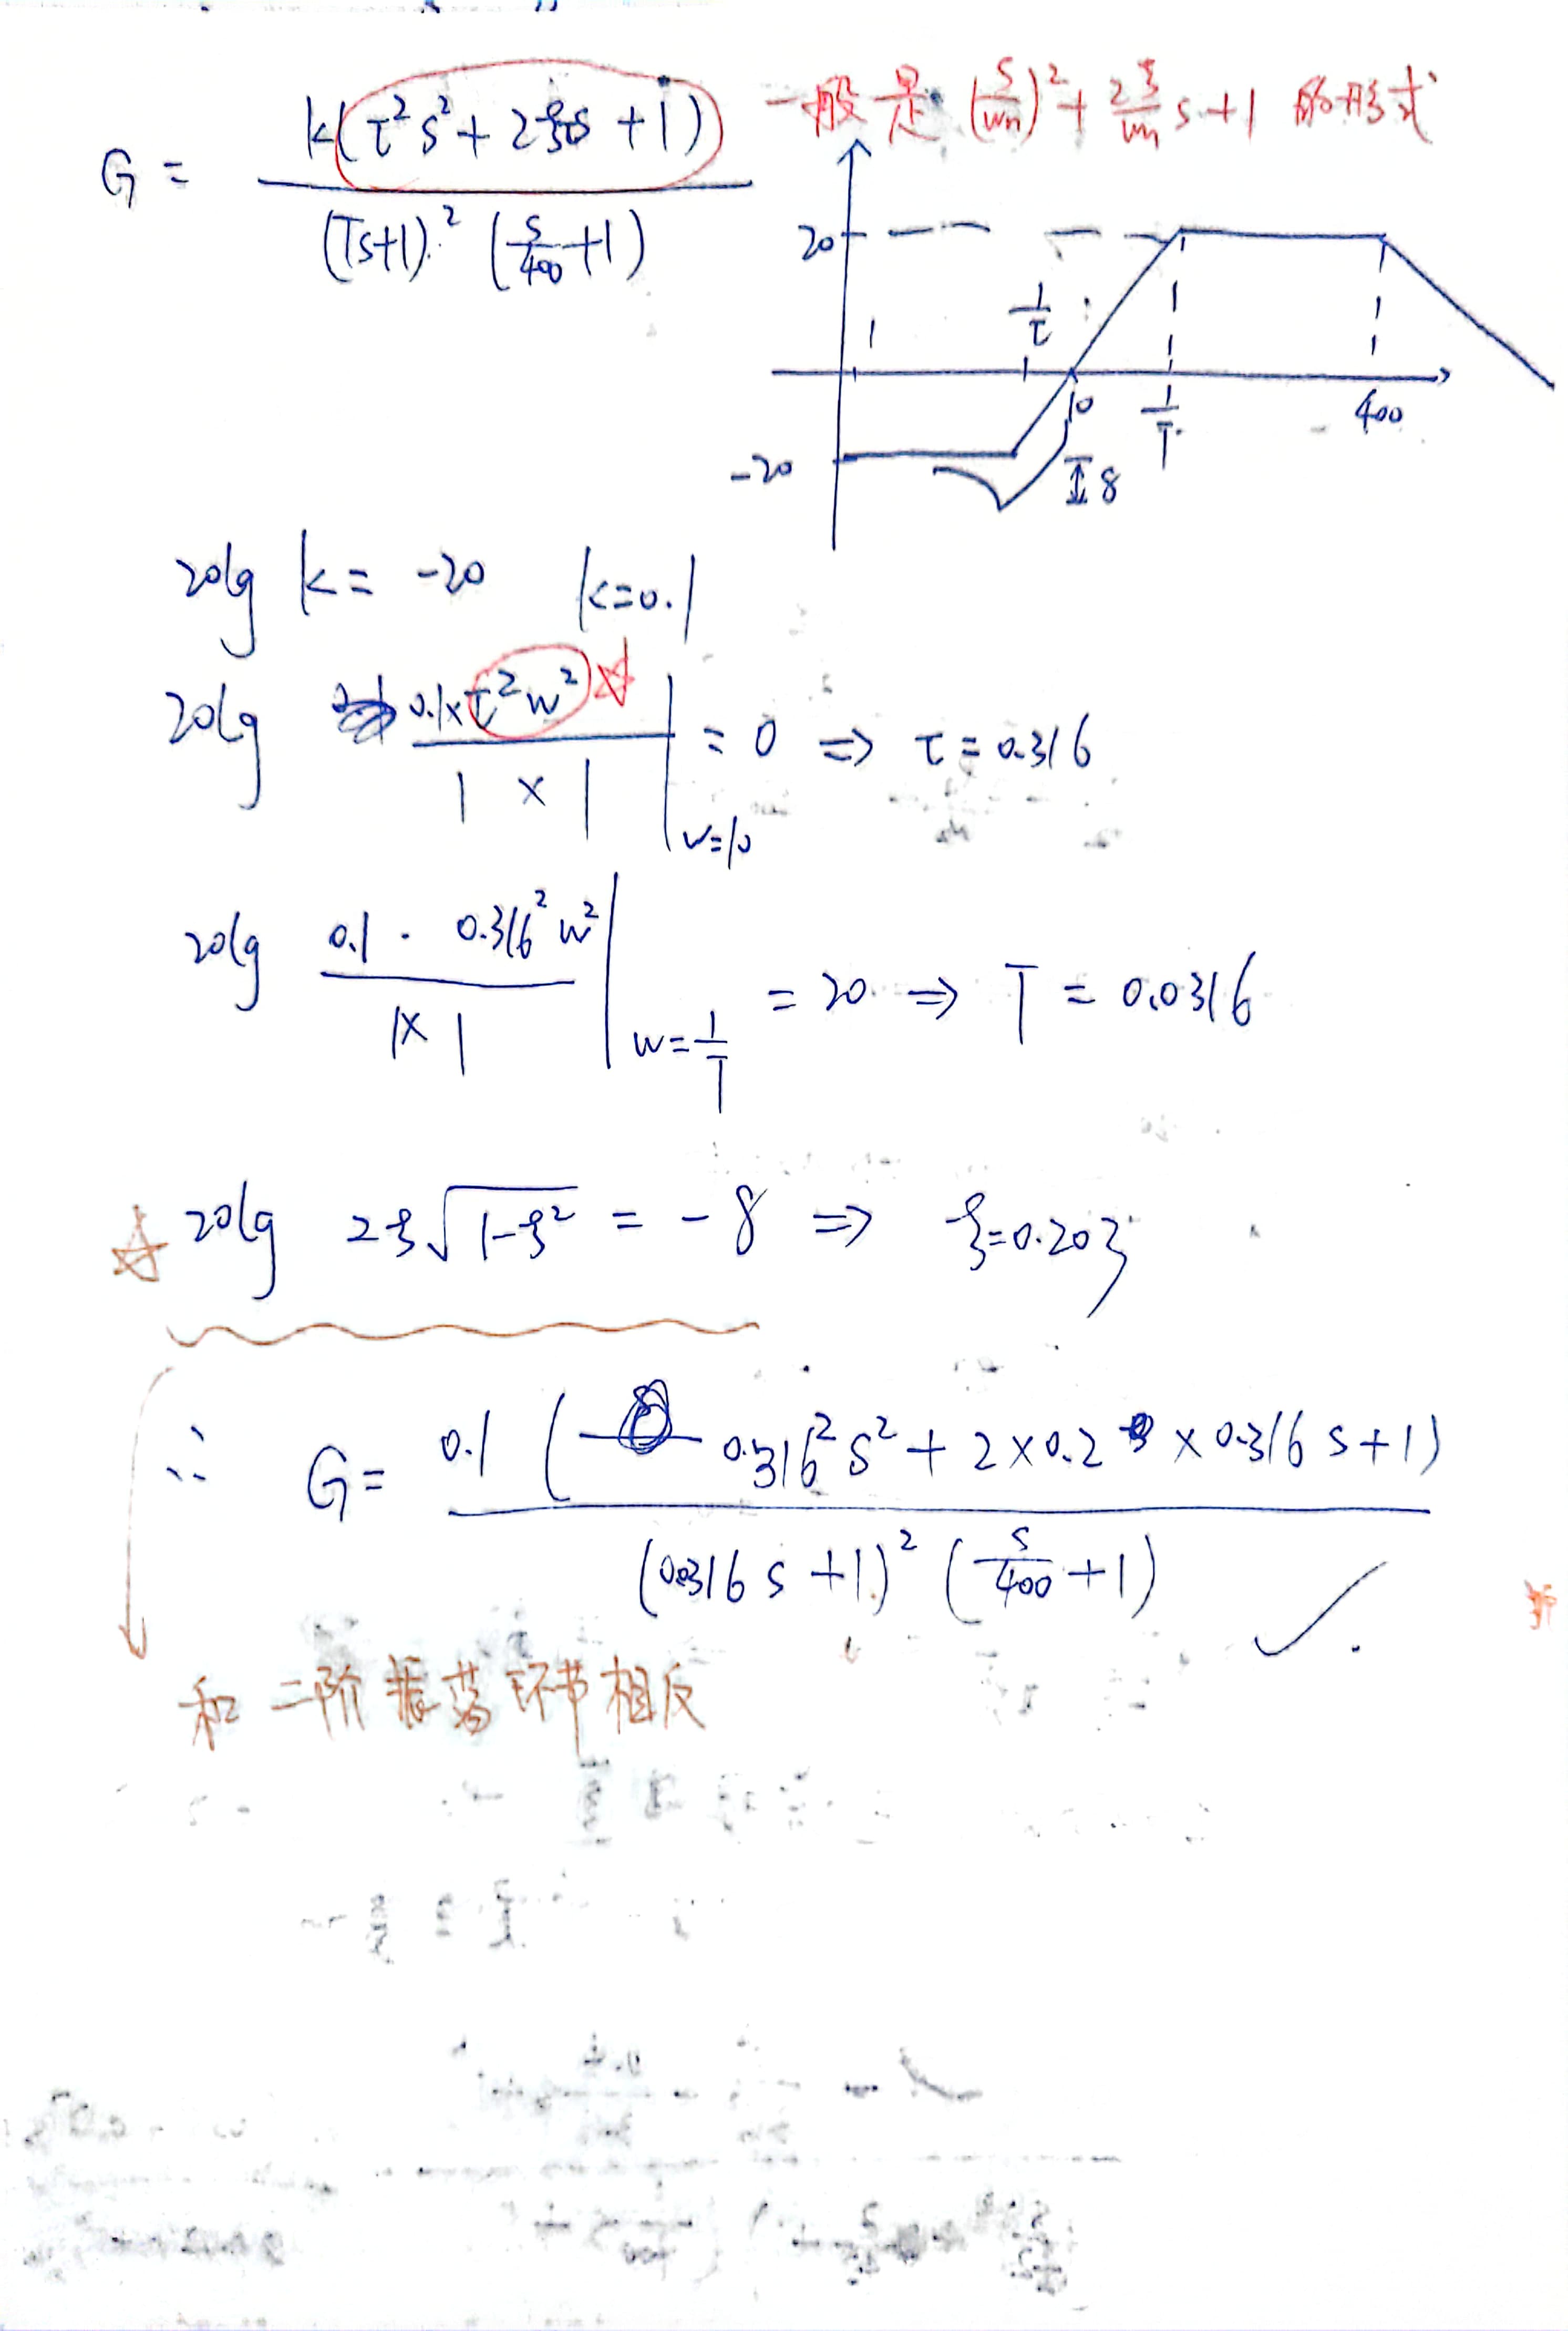 G = k(τ²s²+2ξτs+1) / (Ts+1)²(s/400+1)
一般是 (s/wn)²+2ξ/wn s+1 的形式
20
1
1/τ
10
1/T
400
-20
8
20lg k = -20 k=0.1
20lg 0.1×τ²w² / 1×1 |w=10 = 0 ⇒ τ=0.316
20lg 0.1·0.316²w² / 1×1 |w=1/T = 20 ⇒ T = 0.0316
☆ 20lg 2ξ√(1-ξ²) = -8 ⇒ ξ=0.203
∴ G = 0.1(0.316²s²+2×0.2×0.316s+1) / (0.0316s+1)²(s/400+1) ✓
和二阶振荡环节相反